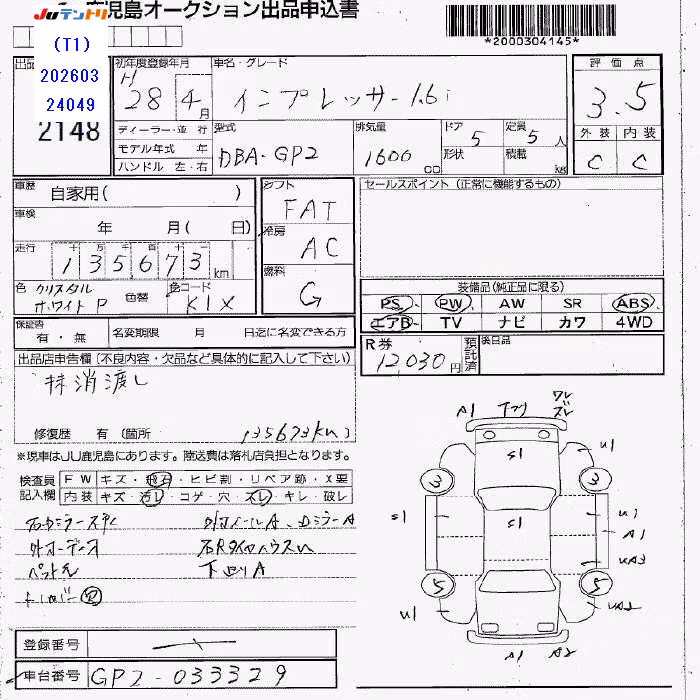 JUテントリ 鹿児島オークション出品申込書
*2000304145*
(T1)
202603
24049
2148
初年度登録年月 車名・グレード 評価点
H 28年 4月 インプレッサ 1.6i 3.5
ディーラー・並行 型式 排気量 ドア 5 定員 5人 外装 内装
モデル年式 年 DBA-GP2 1600cc 形状 積載 kg C C
ハンドル 左・右
車歴 自家用( ) シフト FAT セールスポイント(正常に機能するもの)
車検 年 月( 日) 冷房 AC
走行 135673km 燃料 G
色 クリスタルホワイトP 色替 色コード K1X
装備品(純正品に限る)
PS PW AW SR ABS
エアB TV ナビ カワ 4WD
保証書 有・無 名変期限 月 日迄に名変できる方
R券 12030円 預託済 後日品
出品店申告欄(不良内容・欠品など具体的に記入して下さい)
抹消渡し
修復歴 有(箇所 135673km)
※現車はJU鹿児島にあります。陸送費は落札店負担となります。
検査員記入欄 FW キズ・飛石・ヒビ割・リペア跡・X要
内装 キズ・汚レ・コゲ・穴・スレ・キレ・破レ
外ホイールA、DミラーA
下回りA
A1 ワレ ズレ
S1 U1
3 3
S1 S1 U1
A1
UA3
5 5
U1 UA2
S1 A1
登録番号
車台番号 GP2-033329